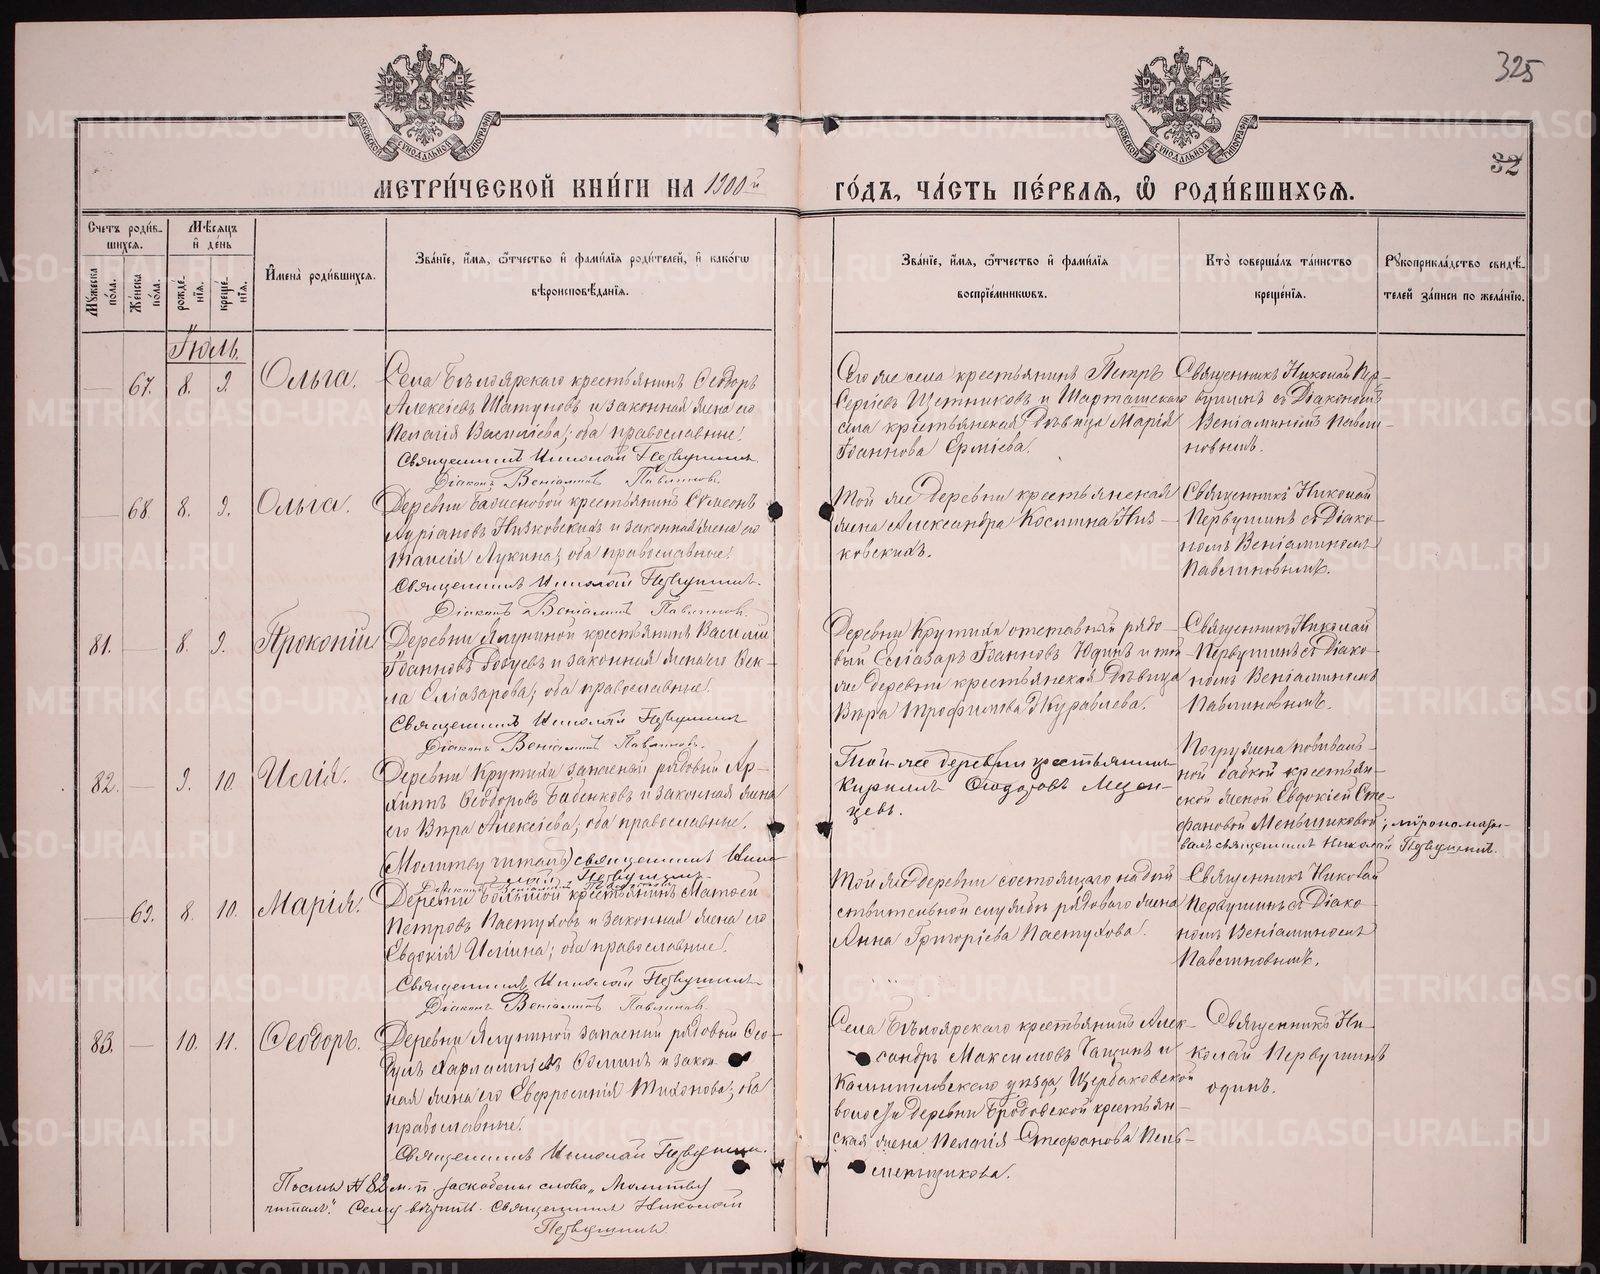 325
32
МОСКОВСКОЙ СѴНОДАЛЬНОЙ ТИПОГРАФІИ
МОСКОВСКОЙ СѴНОДАЛЬНОЙ ТИПОГРАФІИ
МЕТРИ́ЧЕСКОЙ КНИ́ГИ НА 1900й ГО́ДЪ, ЧА́СТЬ ПЕ́РВАѦ, Ѡ҆ РОДИ́ВШИХСѦ.
Счетъ роди́в-
шихся.
Мужеска по́ла.
Же́нска по́ла.
Мѣ́сяцъ
и҆ де́нь
рожде́-
нія.
креще́-
нія.
И҆мена̀ роди́вшихся.
Зва́ніе, и҆́мя, ѻ҆́тчество и҆ фами́лія роди́телей, и҆ како́гѡ
вѣроисповѣ́данія.
Зва́ніе, и҆́мя, ѻ҆́тчество и҆ фами́лія
воспріе́мниковъ.
Кто̀ соверша́лъ та́инство
креще́нія.
Рꙋкоприкла́дство свидѣ́-
телей за́писи по жела́нію.
Іюль.
67. 8. 9. Ольга.
Села Бѣлоярскаго крестьянинъ Ѳеодоръ
Алексѣевъ Шатуновъ и законная жена его
Пелагія Васильева; оба православные.
Священникъ Николай Первушинъ
Діаконъ Веніаминъ Павлиновъ.
Его же села крестьянинъ Петръ
Сергѣевъ Щетниковъ и Шарташскаго
села крестьянская дѣвица Марія
Іоаннова Ермѣева.
Священникъ Николай Пер-
вушинъ съ Діакономъ
Веніаминомъ Павли-
новымъ.
68. 8. 9. Ольга.
Деревни крестьянинъ Сѵмеонъ
Низковскихъ и законная жена его
Таисія Лукина; оба православные.
Священникъ Николай Первушинъ.
Діаконъ Веніаминъ Павлиновъ.
Той же деревни крестьянская
жена Александра Космина Низ-
ковскихъ.
Священникъ Николай
Первушинъ съ Діако-
номъ Веніаминомъ
Павлиновымъ.
81. 8. 9. Прокопій
Деревни Ялуниной крестьянинъ Василій
Іоанновъ и законная жена его Ѳек-
ла Еліазарова; оба православные.
Священникъ Николай Первушинъ
Діаконъ Веніаминъ Павлиновъ.
Деревни Крутихи отставный рядо-
вый Еліазаръ Іоанновъ Юдинъ и той
же деревни крестьянская дѣвица
Вѣра Трофимова Журавлева.
Священникъ Николай
Первушинъ съ Діако-
номъ Веніаминомъ
Павлиновымъ.
82. 9. 10. Илія.
Деревни Крутихи запасный рядовый Ар-
хиппъ Ѳеодоровъ Бабенковъ и законная жена
его Вѣра Алексѣева; оба православные.
(Молитву читалъ) священникъ Нико-
лай Первушинъ
Діаконъ Веніаминъ Павлиновъ
Той-же деревни крестьянинъ
Кириллъ Ѳеодоровъ Мезен-
цевъ.
Погружена повиваль-
ной бабкой крестьян-
ской женой Евдокіей Сте-
фановой Меньшиковой; мѵропомаза-
валъ священникъ Николай Первушинъ.
69. 8. 10. Марія.
Деревни Большой крестьянинъ Матѳей
Петровъ Пастуховъ и законная жена его
Евдокія Ильина; оба православные.
Священникъ Николай Первушинъ
Діаконъ Веніаминъ Павлиновъ
Той же деревни состоящаго на дѣй-
ствительной службѣ рядового жена
Анна Григоріева Пастухова.
Священникъ Николай
Первушинъ съ Діако-
номъ Веніаминомъ
Павлиновымъ.
83. 10. 11. Ѳеодоръ.
Деревни Ялуниной запасный рядовый Ѳео-
дулъ Харлампіевъ и закон-
ная жена его Евфросинія Тихонова; оба
православные.
Священникъ Николай Первушинъ.
Села Бѣлоярскаго крестьянинъ Алек-
сандръ Максимовъ и
Камышловскаго уѣзда, Щербаковской
волости деревни Бродовской крестьян-
ская жена Пелагія Стефанова Пель-
менщикова.
Священникъ Ни-
колай Первушинъ
одинъ.
Послѣ № 82 м. п. въ скобки слова „Молитву
читалъ." Сему вѣрить. Священникъ Николай
Первушинъ
METRIKI.GASO-URAL.RU